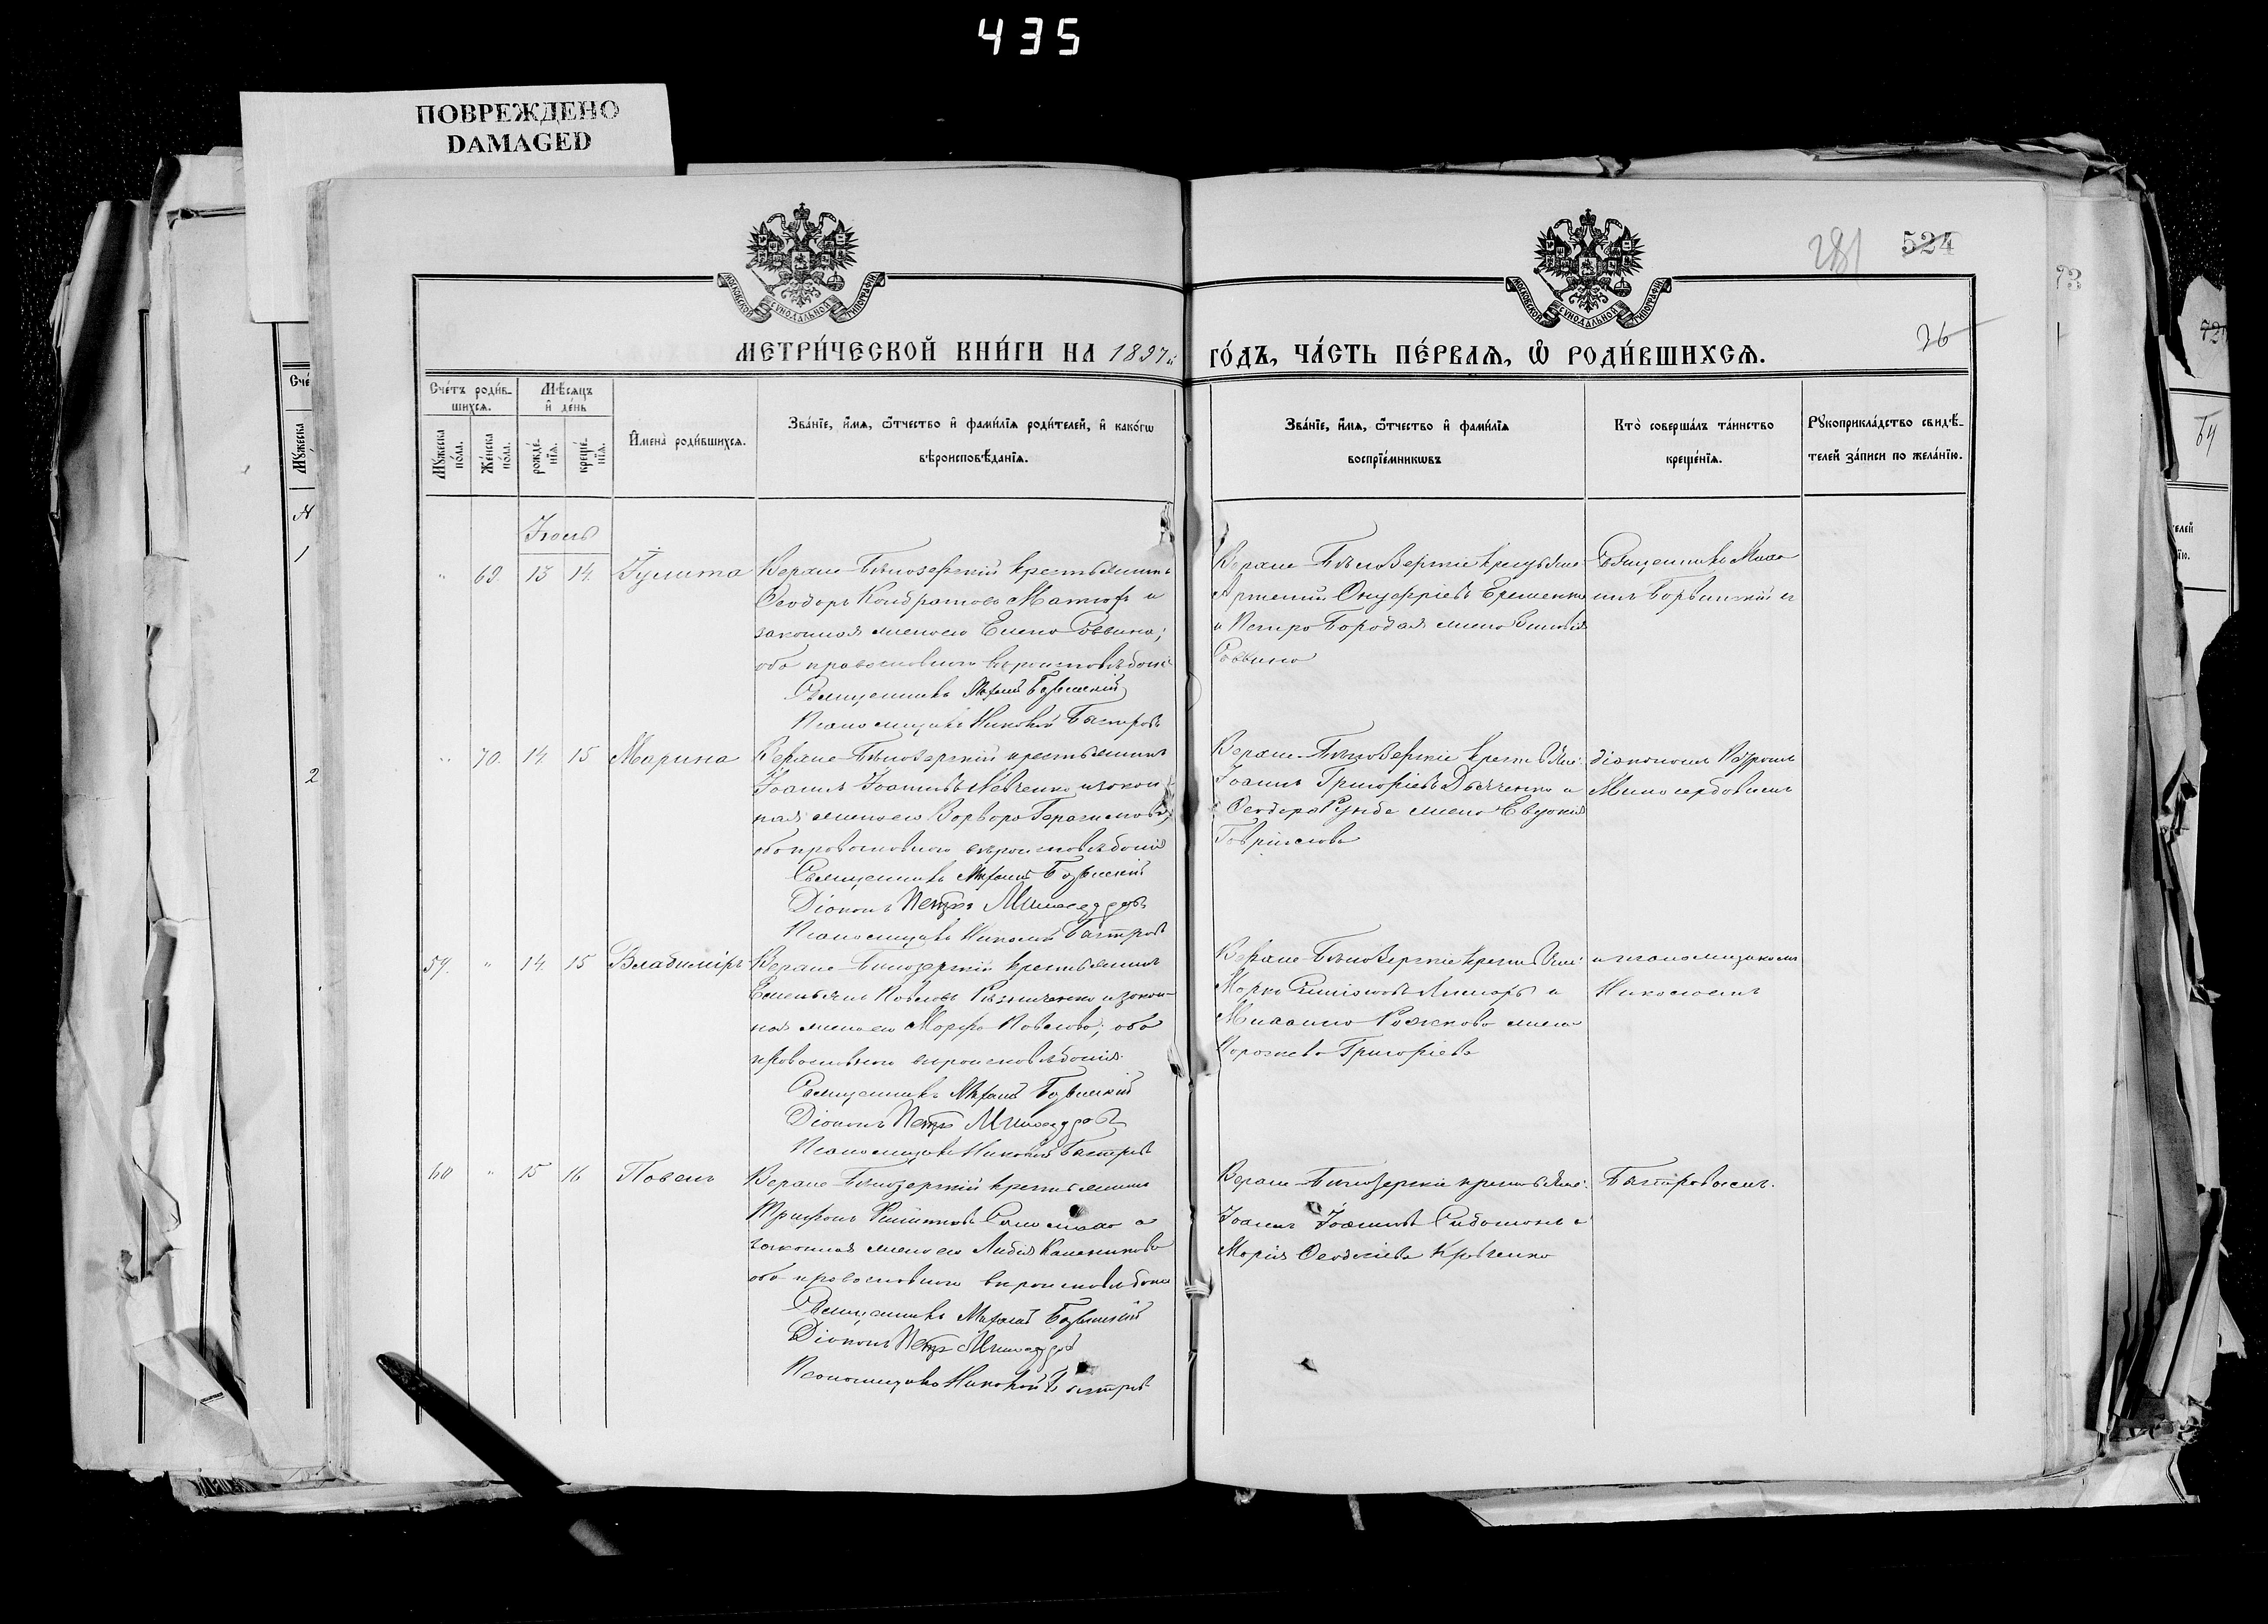 435
ПОВРЕЖДЕНО
DAMAGED
281 524
26
МЕТРИ́ЧЕСКОЙ КНИ́ГИ НА 1897й ГО́ДЪ, ЧА́СТЬ ПЕ́РВАЯ, Ѡ РОДИ́ВШИХСЯ.
Сче́тъ роди́в-
шихся.
Мꙋ́жеска
по́ла.
Же́нска
по́ла.
Мѣ́сяцъ
и де́нь
рожде́-
нїя.
креще́-
нїя.
Имена̀ роди́вшихся.
Зва́нїе, и́мя, ѻ́тчество и фами́лїя роди́телей, и како́гѡ
вѣроисповѣ́данїя.
Зва́нїе, и́мя, ѻ́тчество и фами́лїя
воспрїе́мникѡвъ
Кто̀ соверша́лъ та́инство
креще́нїя.
Рꙋкоприкла́дство свидѣ́-
телей за́писи по жела́нїю.
Іюль
" 69. 13 14. Іулита
Верхне-Бѣлозерскій крестьянинъ
Ѳеодоръ Кондратовъ и
законная жена его Елена Саввина;
оба православнаго вѣроисповѣданія
Священникъ
Псаломщикъ Николай Быстровъ
Верхне-Бѣлозерскіе крестьяне
Онуфріевъ Ерешенко
и Петра Бородая жена
Саввина
Священникъ Миха-
" 70. 14. 15 Марина
Верхне-Бѣлозерскій крестьянинъ
Іоаннъ Іоанновъ и закон-
ная жена его Варвара Герасимова;
оба православнаго вѣроисповѣданія
Священникъ
Діаконъ Петръ Милосердовъ
Псаломщикъ Николай Быстровъ
Верхне-Бѣлозерскіе крестьяне:
Іоаннъ Григоріевъ Дьяченко и
Ѳеодора жена Евдокія
Гавріилова
діакономъ Петромъ
Милосердовымъ
59. " 14. 15 Владиміръ
Верхне-Бѣлозерскій крестьянинъ
Емельянъ Павловъ и закон-
ная жена его Марфа Павлова; оба
православнаго вѣроисповѣданія.
Священникъ
Діаконъ Петръ Милосердовъ
Псаломщикъ Николай Быстровъ
Верхне-Бѣлозерскіе крестьяне:
Марко и
жена
Григоріева
и псаломщикомъ
Николаемъ
60 " 15 16 Павелъ
Верхне-Бѣлозерскій крестьянинъ
Трифонъ и
законная жена его Лидія
оба православнаго вѣроисповѣданія
Священникъ
Діаконъ Петръ Милосердовъ
Псаломщикъ Николай Быстровъ
Верхне-Бѣлозерскіе крестьяне:
Іоаннъ Іоанновъ и
Марія Ѳеодосіева Кравченко
Быстровымъ.